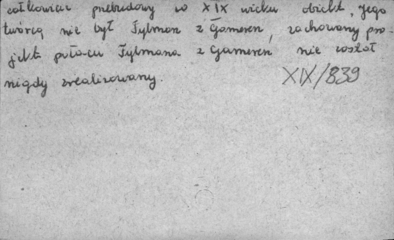 całkowicie przebudowy w XIX wieku obiekt, jego
twórcą nie był Tylman z Gameren, zachowany pro-
jekt pałacu Tylmana z Gameren nie został
nigdy zrealizowany.
XIX/839